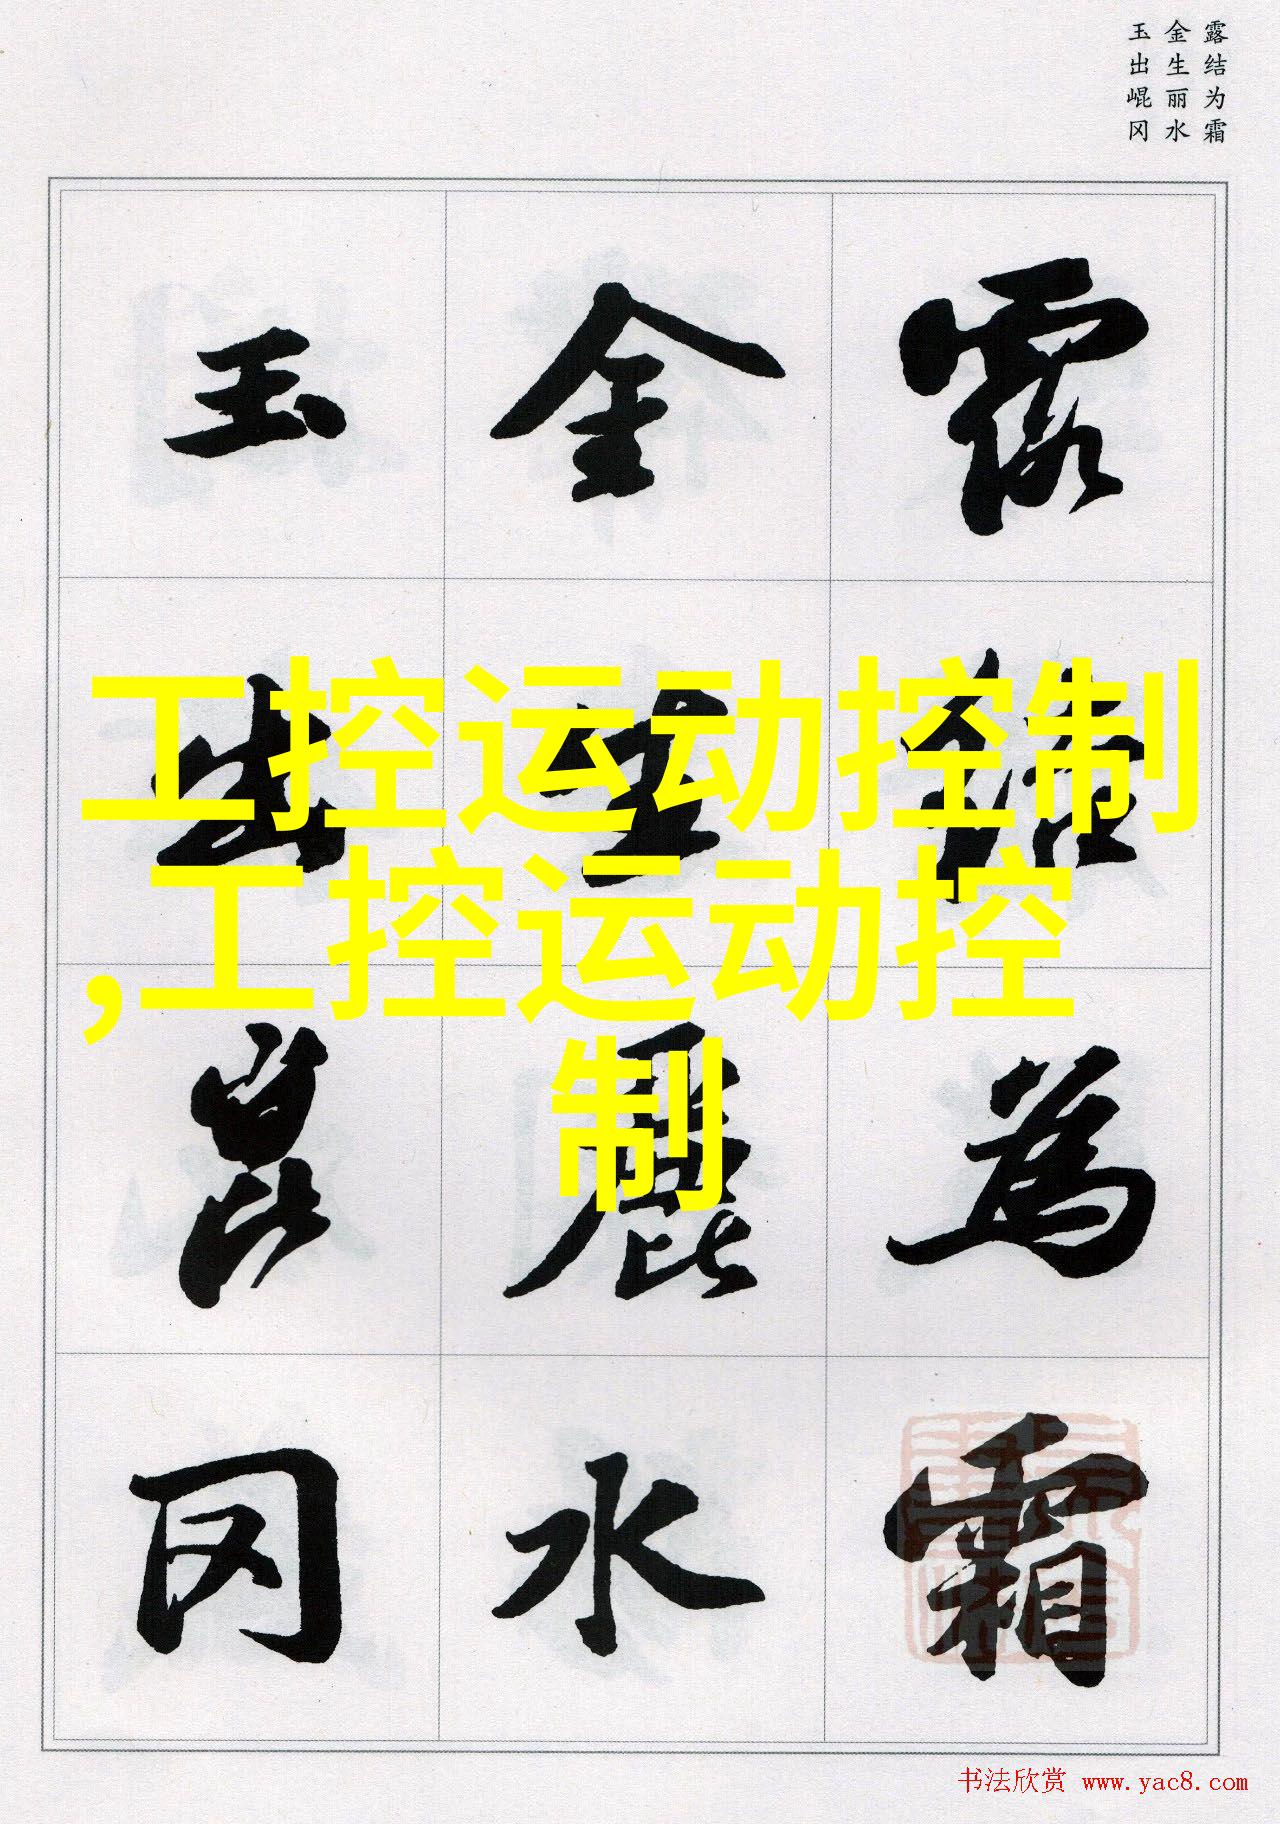 露结为霜
金生丽水
玉出崐冈
露结為霜
金生麗水
玉出崑冈
工控运动控制
,工控运动控
制
书法欣赏 www.yac8.com